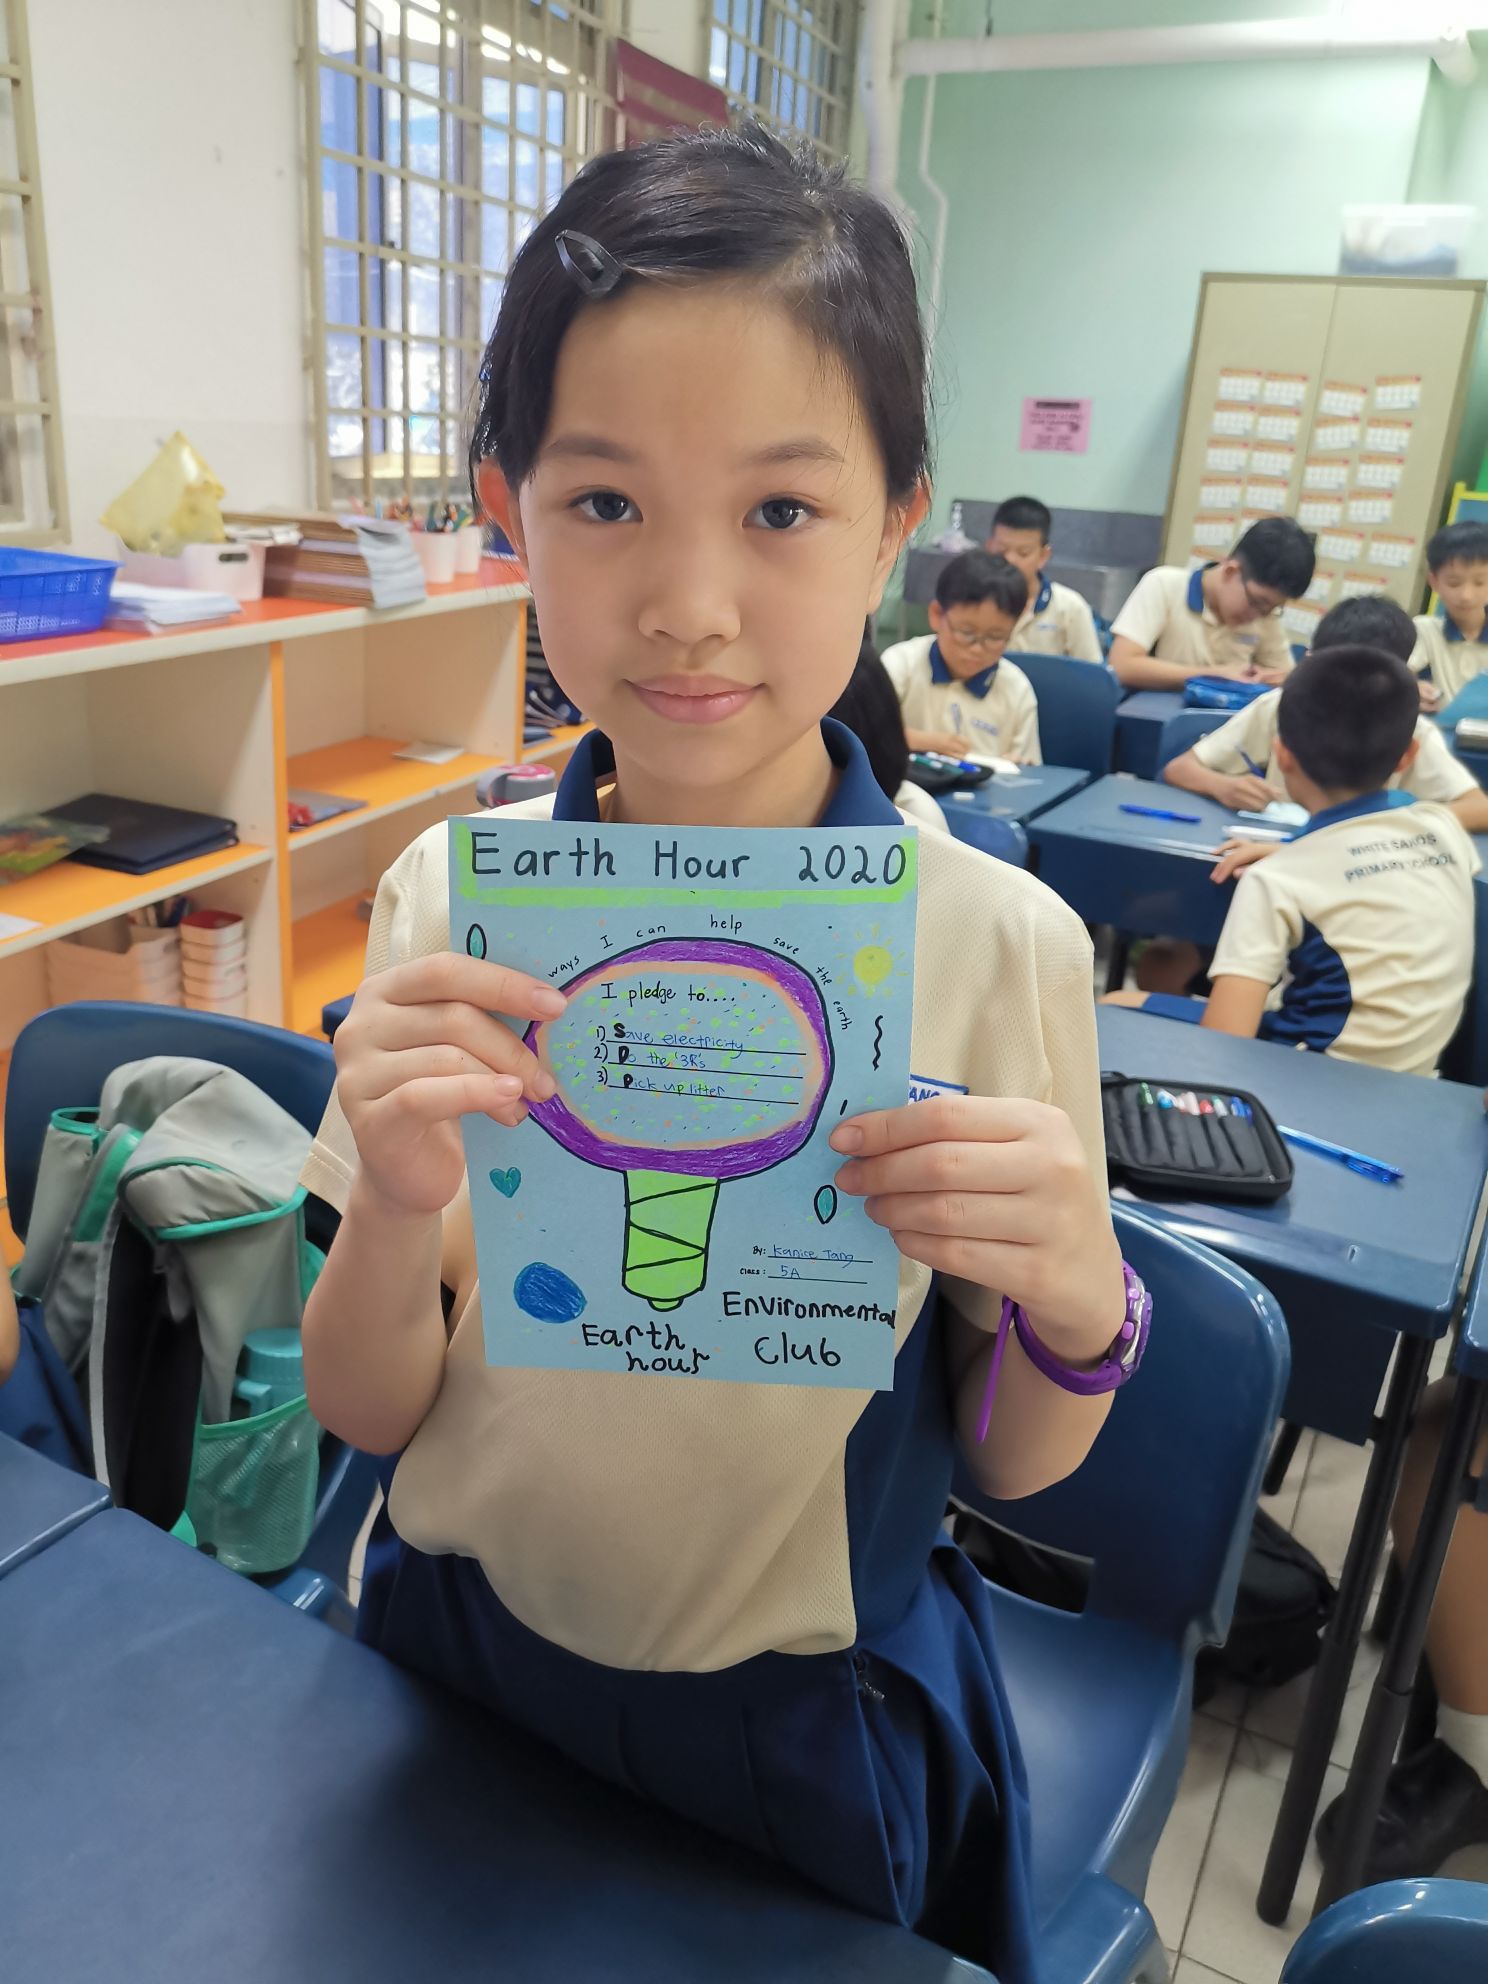 Earth Hour 2020
ways I can help save the earth
I pledge to....
1) Save electricity
2) Do the '3R's
3) Pick up litter
By: Kanice Tang
Class: 5A
Environmental
Club
Earth
hour
WHITE SANDS
PRIMARY SCHOOL